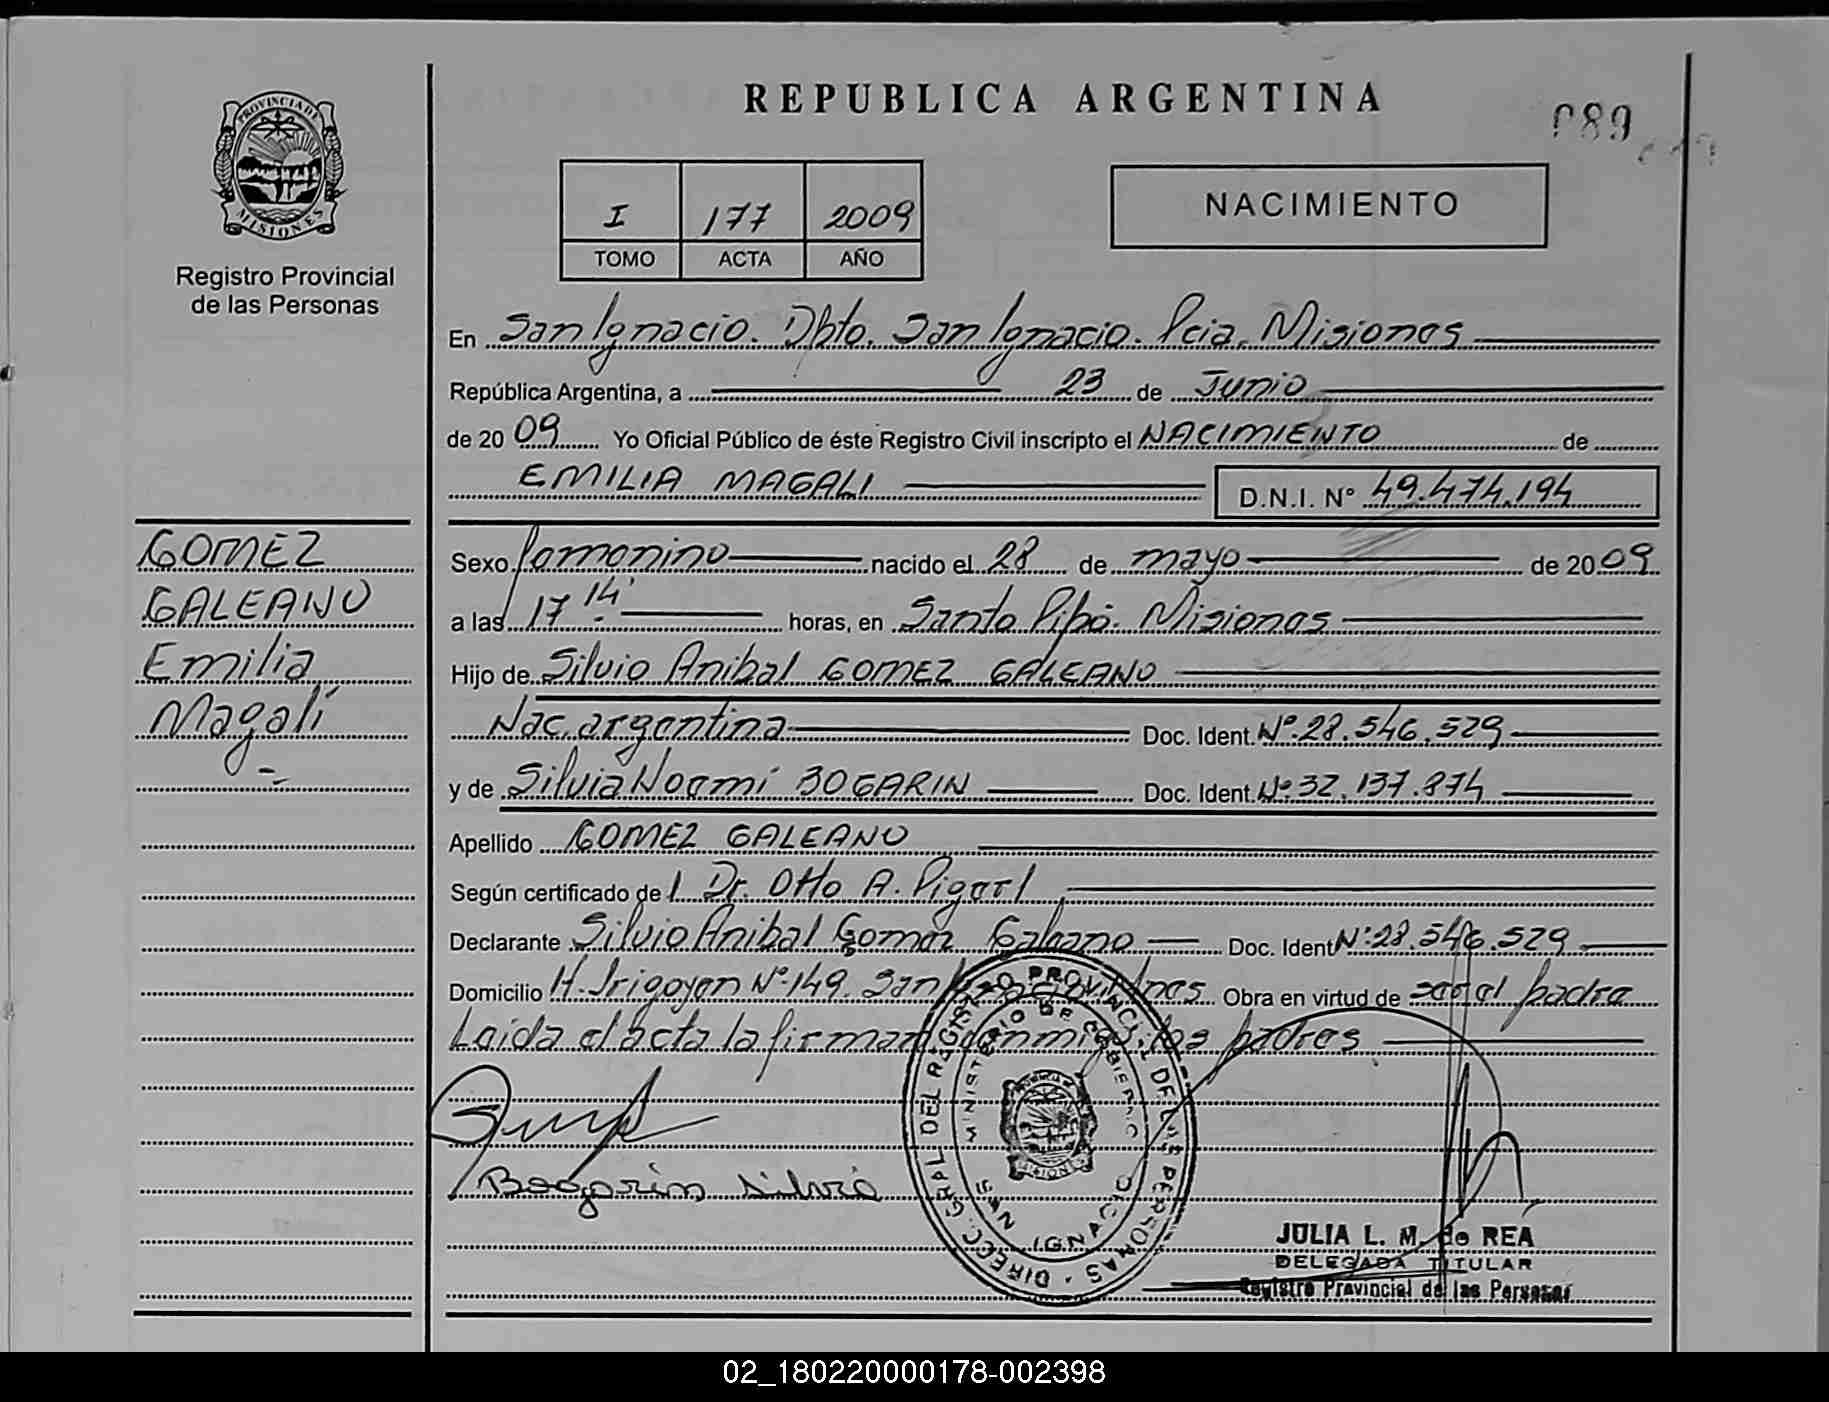 PROVINCIA DE
MISIONES
Registro Provincial
de las Personas
REPUBLICA ARGENTINA
089
I 177 2009
TOMO ACTA AÑO
NACIMIENTO
En San Ignacio. Dpto. San Ignacio. Pcia. Misiones
República Argentina, a 23 de Junio
de 20 09 Yo Oficial Público de éste Registro Civil inscripto el NACIMIENTO de
EMILIA MAGALI D.N.I. N° 49.474.194
GOMEZ
GALEANO
Emilia
Magalí
Sexo femenino nacido el 28 de mayo de 20 09
a las 17 14' horas, en Santo Pipó. Misiones
Hijo de Silvio Anibal GOMEZ GALEANO
Nac. argentina Doc. Ident. N°.28.546.529
y de Silvia Noemí BOGARIN Doc. Ident. N° 32.137.874
Apellido GOMEZ GALEANO
Según certificado de l Dr. Otto A.
Declarante Silvio Anibal Gomez Galeano Doc. Ident N°.28.546.529
Domicilio H. Irigoyen N°.149. San Obra en virtud de ser el padre
Leida el acta la firman conmigo los padres
Bogarin Silvia
DIRECC. GRAL DEL REGISTRO PROVINCIAL DE LAS PERSONAS
MINISTERIO DE GOBIERNO
SAN IGNACIO
JULIA L. M. de REA
DELEGADA TITULAR
Registro Provincial de las Personas
02_180220000178-002398